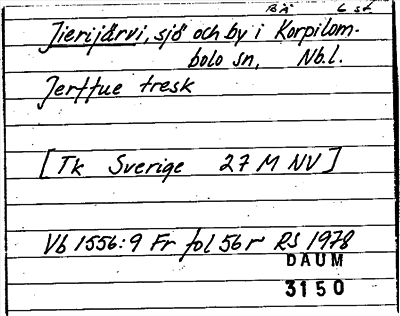 BÄ 6 st
Jierijärvi, sjö och by i Korpilom-
bolo sn, Nb.l.
Jerttue tresk
[Tk Sverige 27 M NV]
Vb 1556:9 Fr fol 56 r RS 1978
DAUM
3150